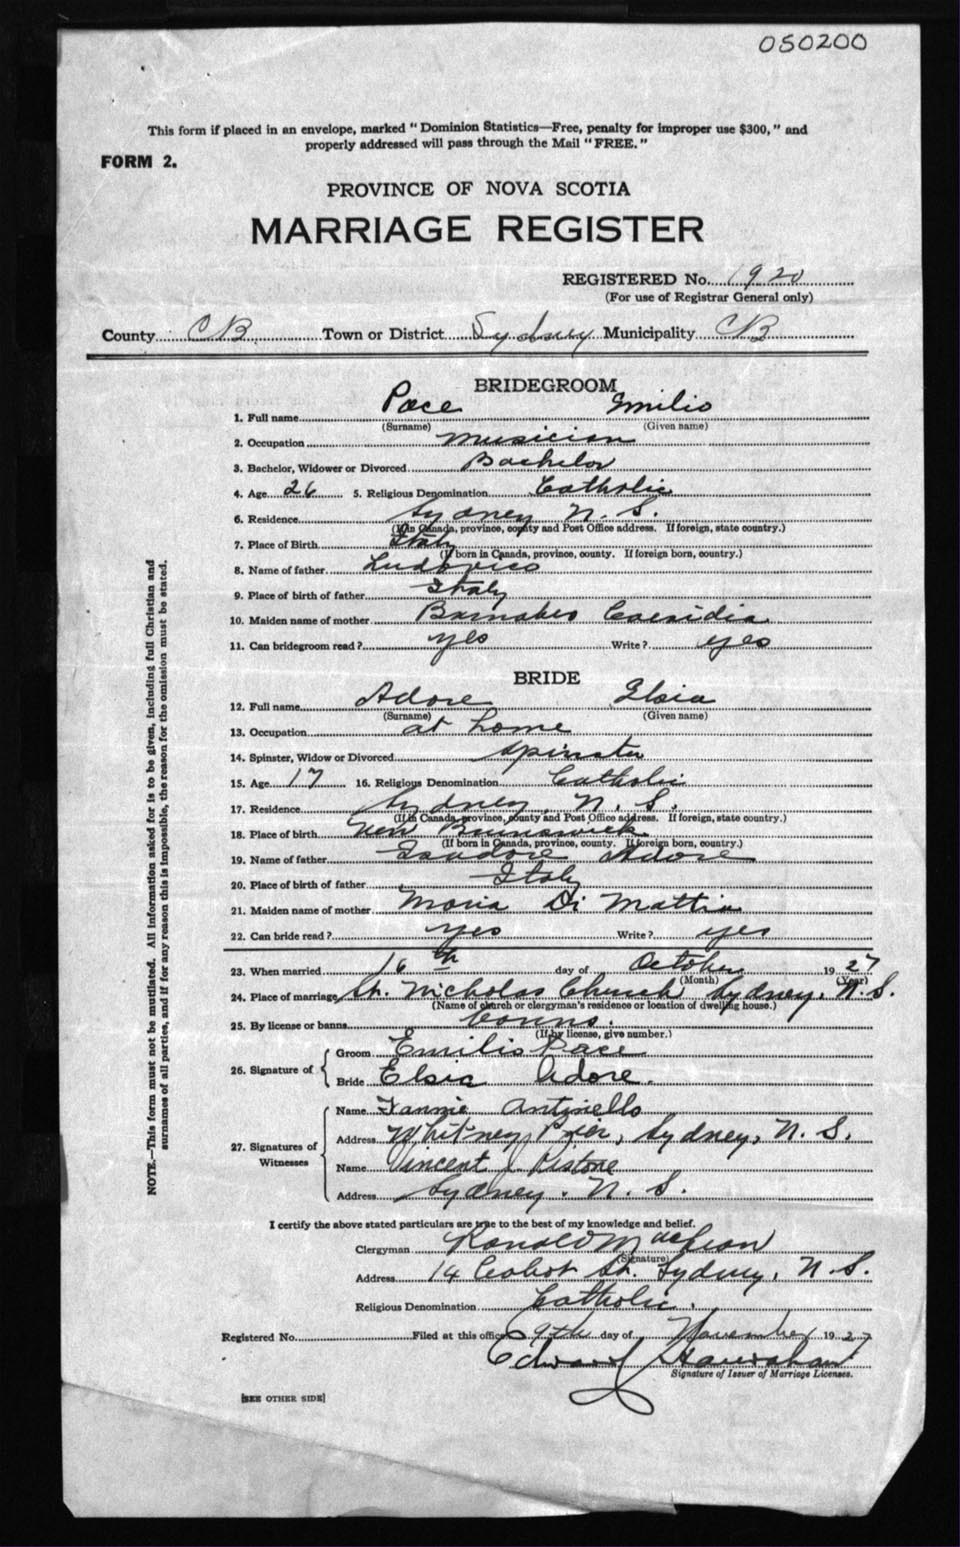 050200
This form if placed in an envelope, marked "Dominion Statistics—Free, penalty for improper use $300," and
properly addressed will pass through the Mail "FREE."
FORM 2.
PROVINCE OF NOVA SCOTIA
MARRIAGE REGISTER
REGISTERED No. 1920
(For use of Registrar General only)
County CB Town or District Sydney Municipality CB
BRIDEGROOM
1. Full name Pace Emilio
(Surname) (Given name)
2. Occupation musician
3. Bachelor, Widower or Divorced Bachelor
4. Age 26 5. Religious Denomination Catholic
6. Residence Sydney N. S.
(If in Canada, province, county and Post Office address. If foreign, state country.)
7. Place of Birth Italy
(If born in Canada, province, county. If foreign born, country.)
8. Name of father Ludovico
9. Place of birth of father Italy
10. Maiden name of mother
11. Can bridegroom read? yes Write? yes
BRIDE
12. Full name Adore Elsia
(Surname) (Given name)
13. Occupation at home
14. Spinster, Widow or Divorced Spinster
15. Age 17 16. Religious Denomination Catholic
17. Residence Sydney, N. S.
(If in Canada, province, county and Post Office address. If foreign, state country.)
18. Place of birth New Brunswick
(If born in Canada, province, county. If foreign born, country.)
19. Name of father Isadore Adore
20. Place of birth of father Italy
21. Maiden name of mother Maria Di Mattia
22. Can bride read? yes Write? yes
23. When married 16th day of October 1927
(Month) (Year)
24. Place of marriage St. Nicholas Church Sydney, N. S.
(Name of church or clergyman's residence or location of dwelling house.)
25. By license or banns banns.
(If by license, give number.)
26. Signature of
Groom Emilio Pace
Bride Elsia Adore.
27. Signatures of Witnesses
Name Fannie Antinello
Address Whitney Pier, Sydney, N. S.
Name Vincent J Pistone
Address Sydney. N. S.
I certify the above stated particulars are true to the best of my knowledge and belief.
Clergyman Ronald
(Signature)
Address 14 Cabot St. Sydney, N. S.
Religious Denomination Catholic.
Registered No. Filed at this office 9th day of November 1927
Edward
Signature of Issuer of Marriage Licenses.
[SEE OTHER SIDE]
NOTE.—This form must not be mutilated. All information asked for is to be given, including full Christian and
surnames of all parties, and if for any reason this is impossible, the reason for the omission must be stated.